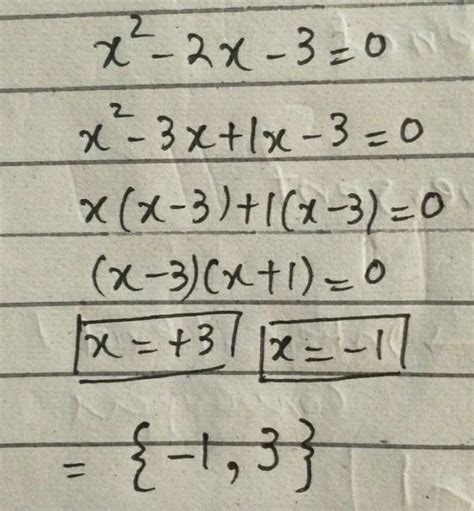 x² - 2x - 3 = 0
x² - 3x + 1x - 3 = 0
x(x-3) + 1(x-3) = 0
(x-3)(x+1) = 0
x = +3 x = -1
= {-1, 3}